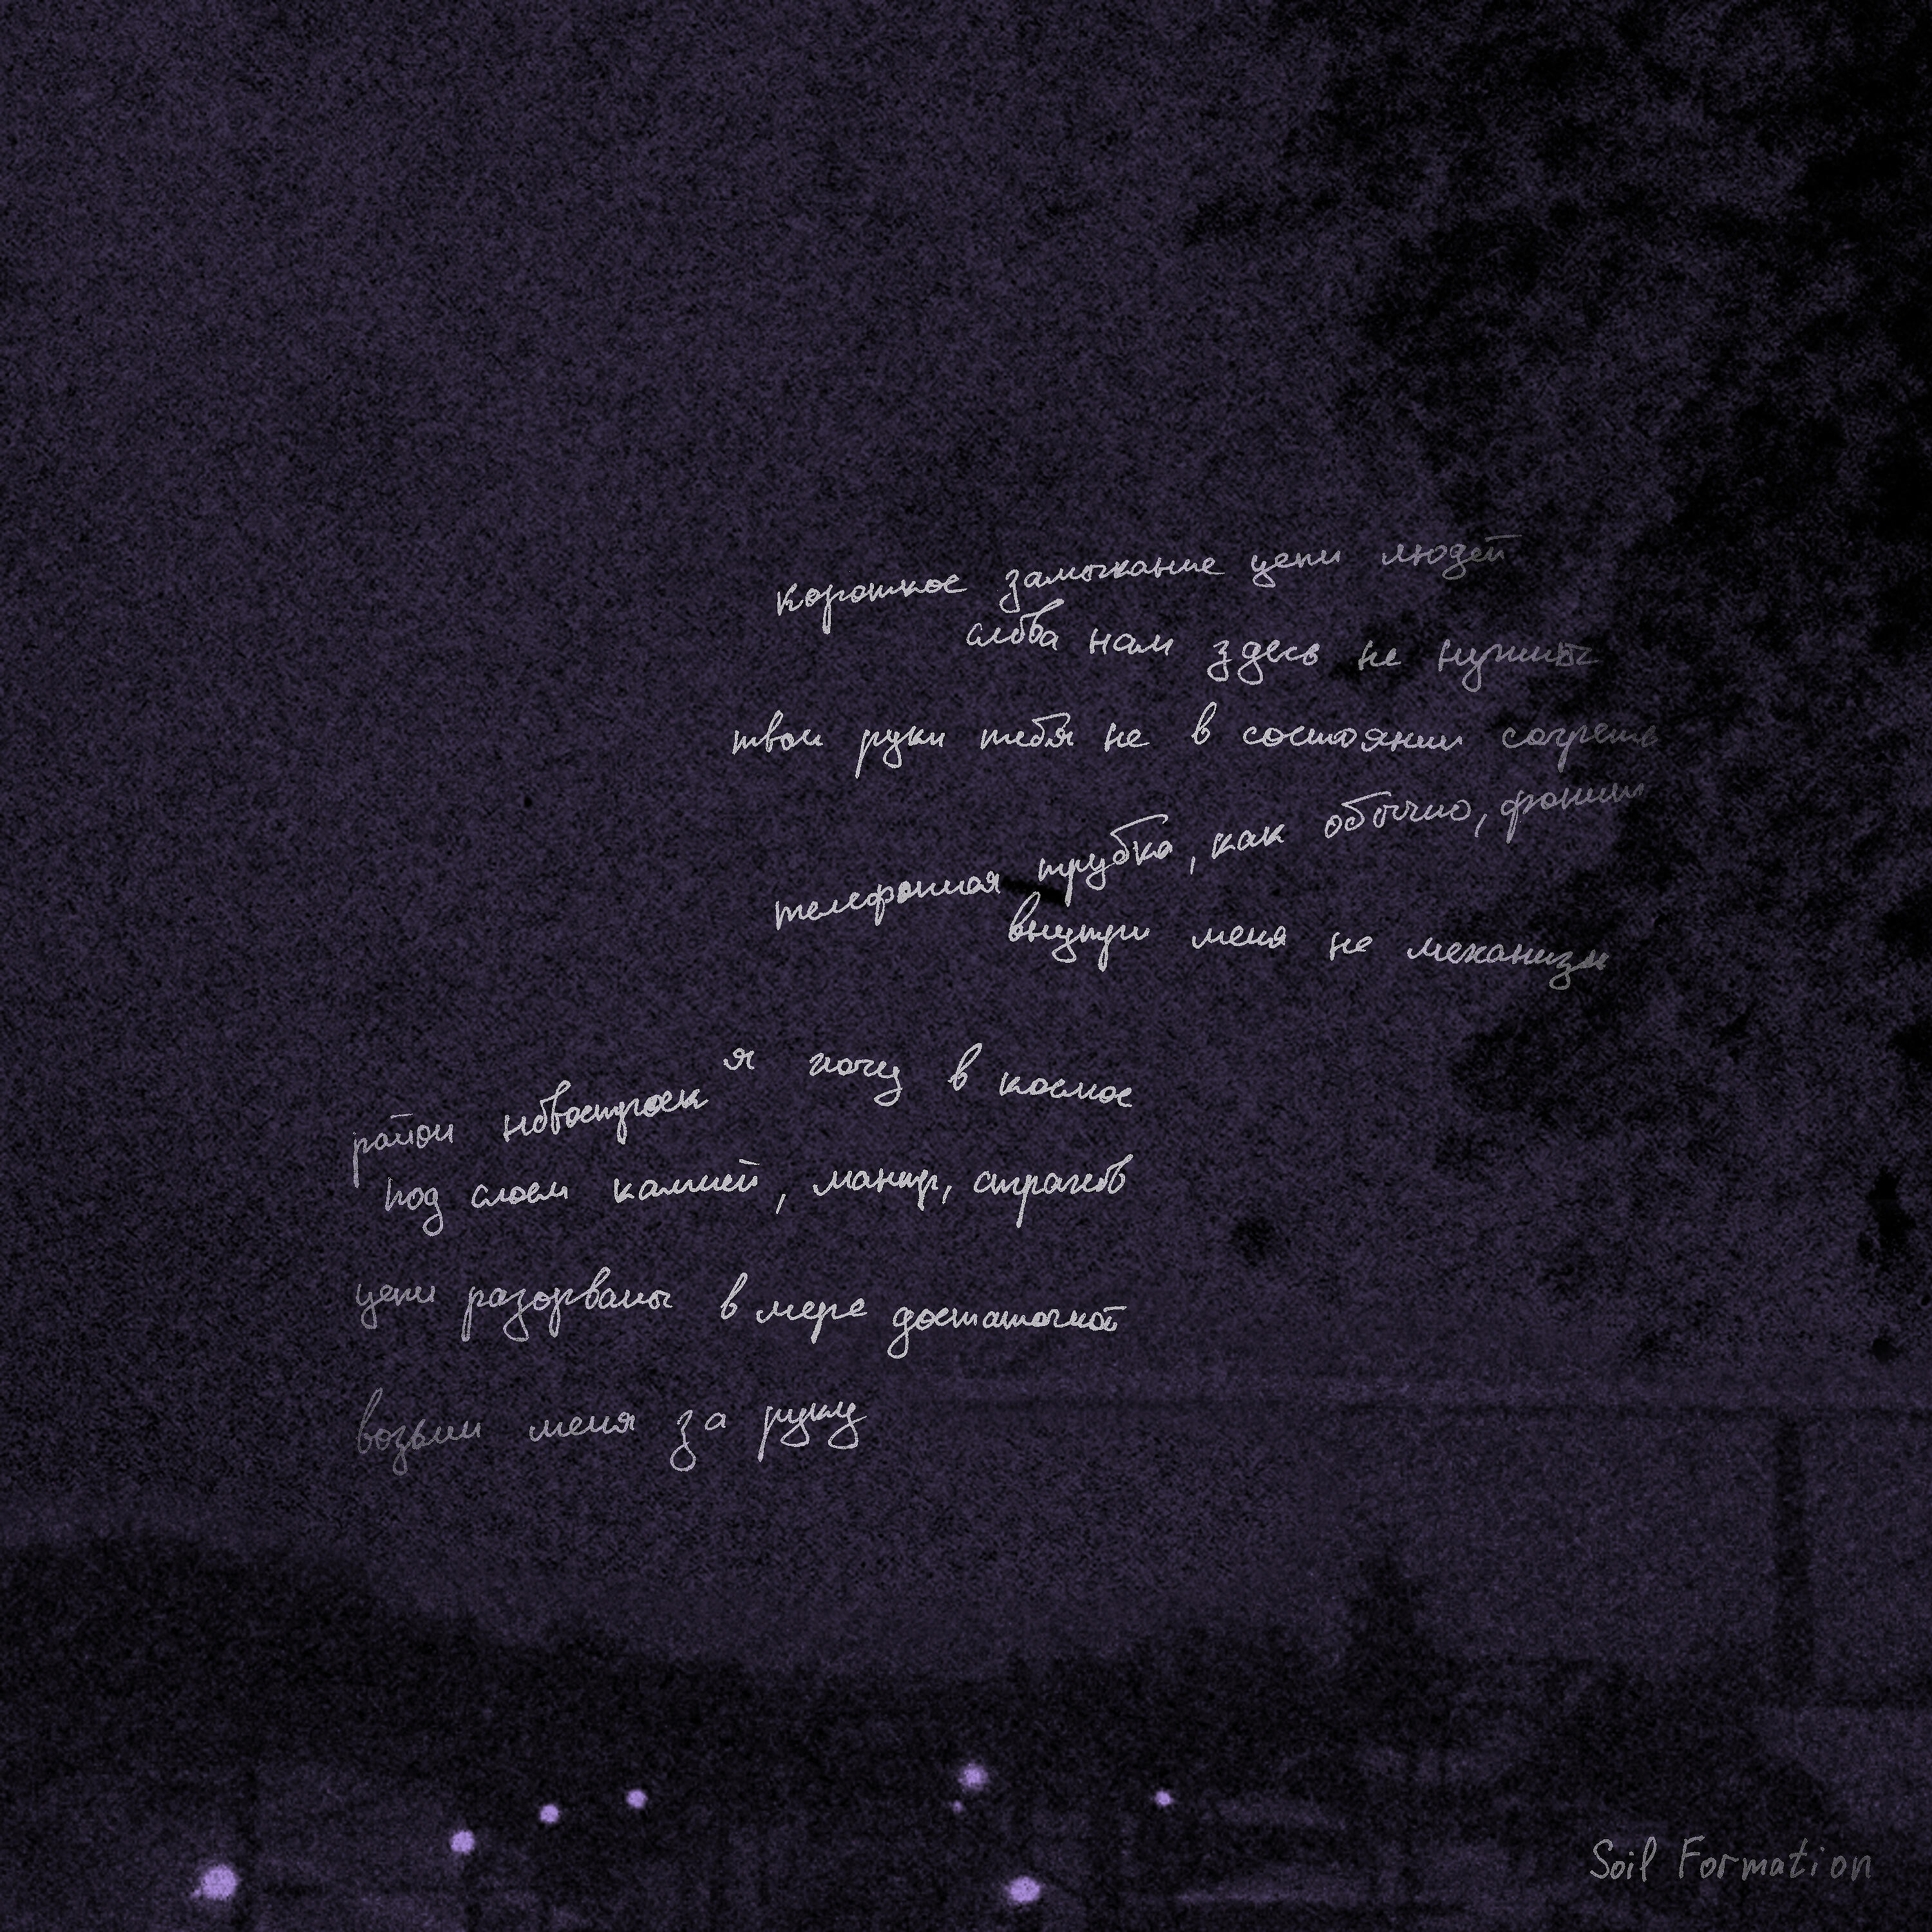 короткое замыкание цепи людей
слова нам здесь не нужны
твои руки тебя не в состоянии согреть
телефонная трубка, как обычно, фонит
внутри меня не механизм
я хочу в космос
район новостроек
под слоем камней, мантр, страхов
цепи разорваны в мере достаточной
возьми меня за руку
Soil Formation